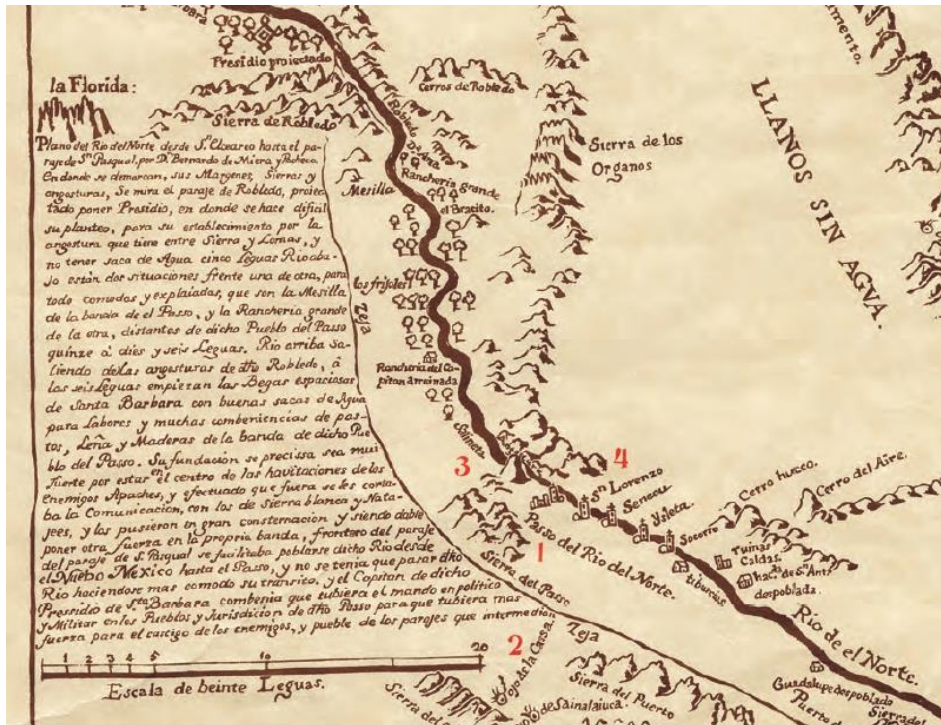 Presidio proiectado
la Florida:
Sierra de Robledo
Cerros de Robledo
Robledo
Dª Ana
LLANOS SIN AGVA.
Sierra de los
Organos
Plano del Rio del Norte desde Sⁿ Elceario hasta el pa-
raje de Sⁿ Pasqual, por Dⁿ Bernardo de Miera y Pacheco
En donde se demarcan, sus Margenes, Sierras y
angosturas, Se mira el paraje de Robledo, proiec-
tado poner Presidio, en donde se hace dificil
su planteo, para su establecimiento por la
angostura que tiene entre Sierra y Lomas, y
no tener saca de Agua cinco Leguas Rio aba-
jo están dos situaciones frente una de otra, para
todo comodas y explaiadas, que son la Mesilla
de la banda de el Passo, y la Rancheria grande
de la otra, distantes de dicho Pueblo del Passo
quinze à dies y seis Leguas. Rio arriba Sa-
liendo de las angosturas de dho Robledo, à
las seis Leguas empiezan las Begas espaciosas
de Santa Barbara con buenas sacas de Agua
para Labores y muchas combeniencias de pas-
tos, Leña y Maderas de la banda de dicho Pue
blo del Passo. Su fundación se precissa sea mui
fuerte por estar en el centro de las havitaciones de los
Enemigos Apaches, y efectuado que fuera se les corta-
ba la Comunicación, con los de Sierra blanca y Nata-
jees, y los pusieron en gran consternacion y siendo dable
poner otra fuerza en la propria banda, frontero del paraje
del paraje de S. Pasqual se facilitaba poblarse dicho Rio desde
el Nuebo Mexico hasta el Passo, y no se tenia que pasar dho
Rio haciendose mas comodo su transito, y el Capitan de dicho
Pressidio de Sta Barbara combenia que tubiera el mando en politico
y Militar en los Pueblos y Jurisdicion de dho Passo para que tubiera mas
fuerza para el castigo de los enemigos, y pueble de los parajes que intermedian
Mesilla
Rancheria grande
el Bracito.
los frijoles
Zeja
Rancheria del Ca-
pitan arruinada
Salineta
3
4
1
2
Passo del Rio del Norte.
Sⁿ Lorenzo
Senecu
Ysleta
Socorro
tiburcios
Cerro hueco.
Cerro del Aire.
Ruinas
Caldas.
hacda de Sⁿ Antº
despoblada.
Sierra del Passo
Zeja
Rio de el Norte.
Guadalupe despoblado
Ojo de la Cassa.
Sierra del Puerto
de Sainalaiuca.
Puerto
Sierra del
1 2 3 4 5 10 20
Escala de beinte Leguas.